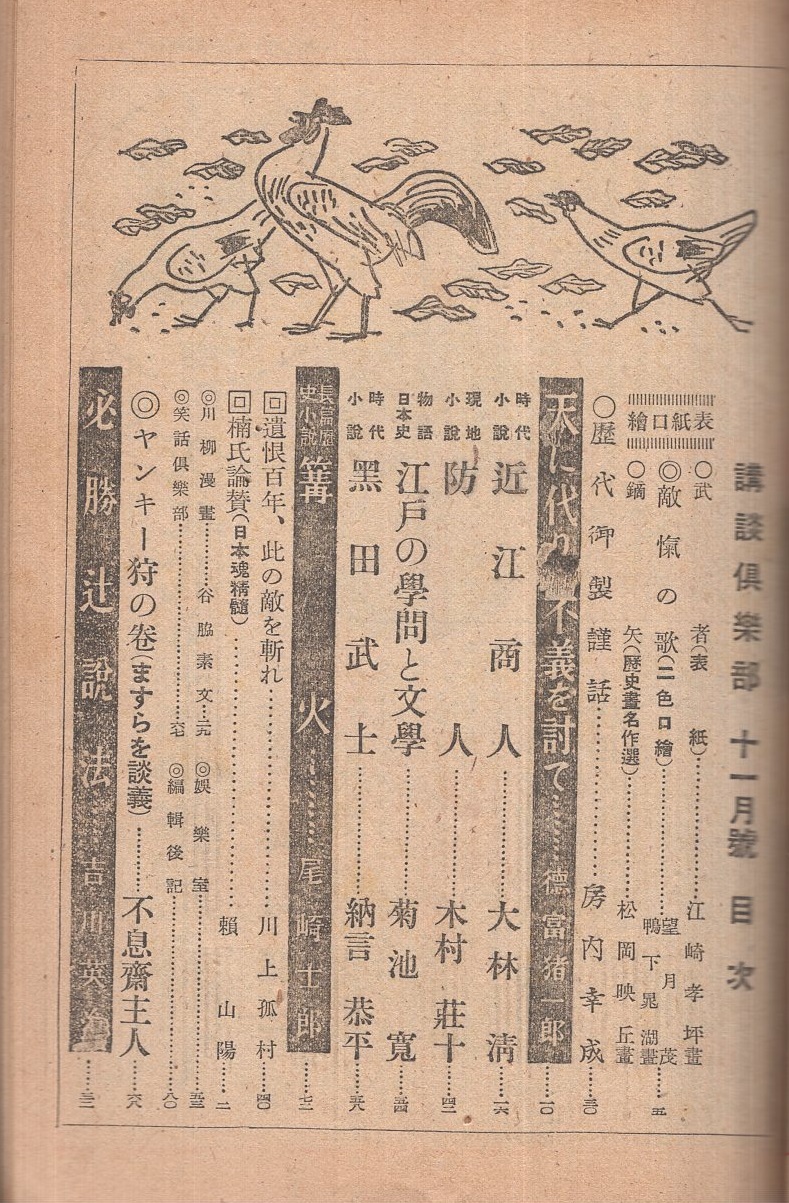 講談倶樂部 十一月號 目次
表紙口繪
○武者(表紙)…………江崎孝坪畫
◎敵愾の歌(二色口繪)…………望月茂 鴨下晁湖畫…五
○鏑矢(歴史畫名作選)…………松岡映丘畫
○歴代御製謹話…………房内幸成……三〇
天に代り不義を討て……德富猪一郎……一〇
時代小説 近江商人…………大林清……一六
現地小説 防人…………木村莊十……四二
日本史物語 江戸の學問と文學…………菊池寛……五四
時代小説 黑田武士…………納言恭平……五八
長篇歴史小説 篝火…………尾崎士郎……七二
回遺恨百年、此の敵を斬れ…………川上孤村……四〇
回楠氏論賛(日本魂精髓)…………賴山陽……二
◎川柳漫畫…………谷脇素文…二九
◎娯樂室…………五三
◎笑話倶樂部…………六七
◎編輯後記…………八〇
◎ヤンキー狩の卷(ますらを談義)…………不息齋主人……六八
必勝辻説法……吉川英治……三二